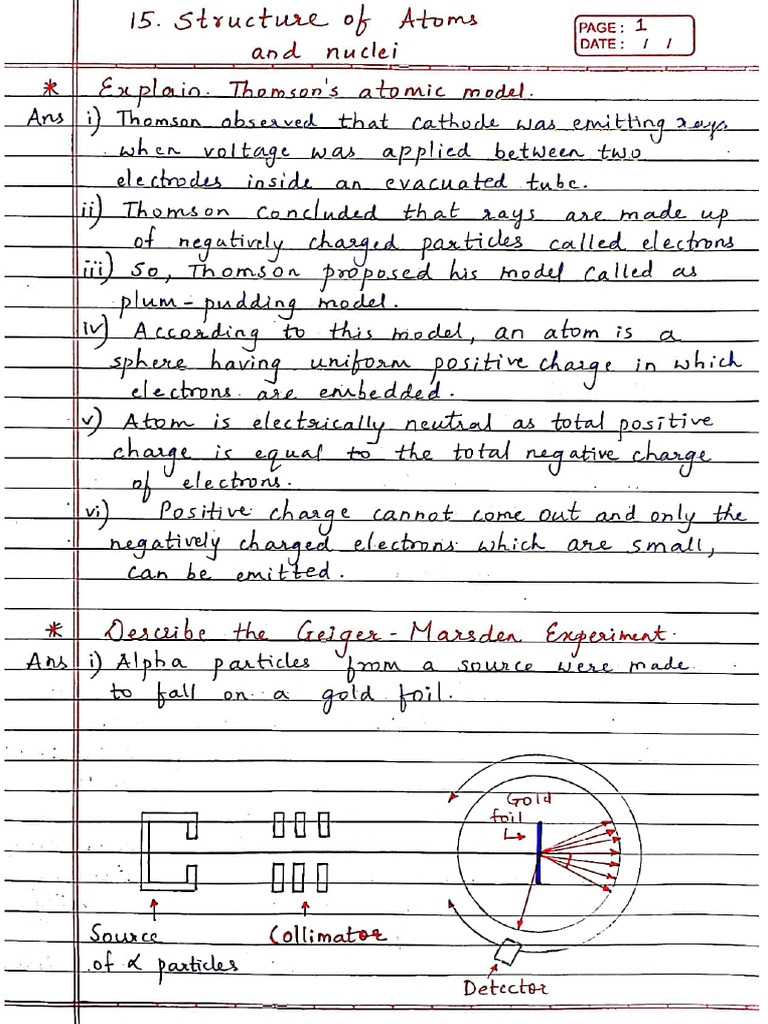 15. Structure of Atoms
and nuclei
PAGE: 1
DATE: / /
* Explain. Thomson's atomic model.
Ans i) Thomson observed that cathode was emitting rays
when voltage was applied between two
electrodes inside an evacuated tube.
ii) Thomson concluded that rays are made up
of negatively charged particles called electrons
iii) So, Thomson proposed his model called as
plum-pudding model.
iv) According to this model, an atom is a
sphere having uniform positive charge in which
electrons are embedded.
v) Atom is electrically neutral as total positive
charge is equal to the total negative charge
of electrons.
vi) Positive charge cannot come out and only the
negatively charged electrons which are small,
can be emitted.
* Describe the Geiger-Marsden Experiment.
Ans i) Alpha particles from a source were made
to fall on a gold foil.
Gold
foil
Source
of α particles
Collimator
Detector